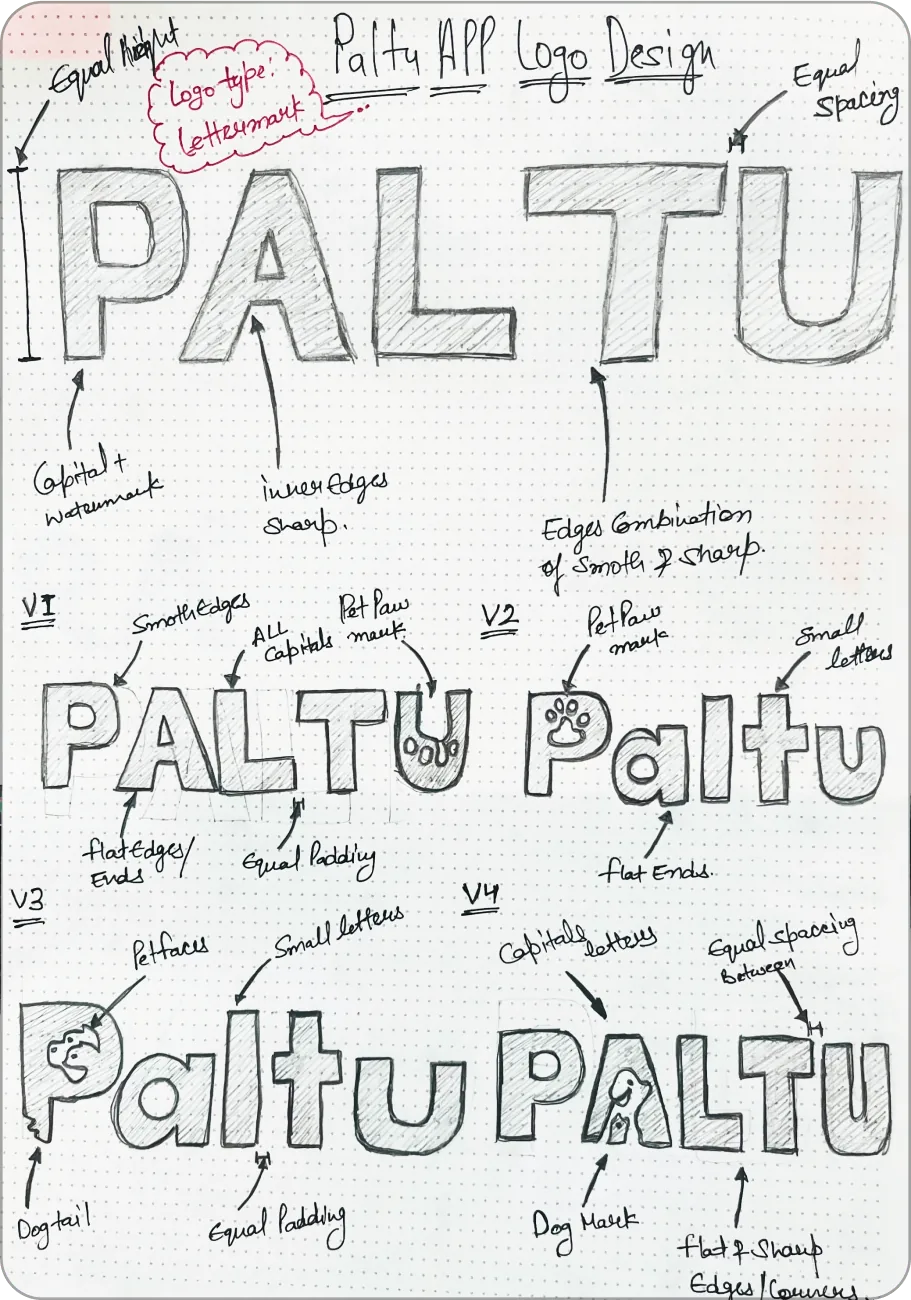 Paltu APP Logo Design
Equal Hieght
Logo type:
Lettermark
Equal
Spacing
PALTU
Capital +
Watermark
inner Edges
Sharp.
Edges Combination
of Smoth & Sharp.
V1
Smoth Edges
ALL
Capitals
Pet Paw
mark
PALTU
flat Edges/
Ends
Equal Padding
V2
Pet Paw
mark
Small
letters
Paltu
flat Ends.
V3
Pet faces
Small letters
Paltu
Dog tail
Equal Padding
V4
Capitals
letters
Equal Spaccing
Between
PALTU
Dog Mark
flat & Sharp
Edges/Corners.